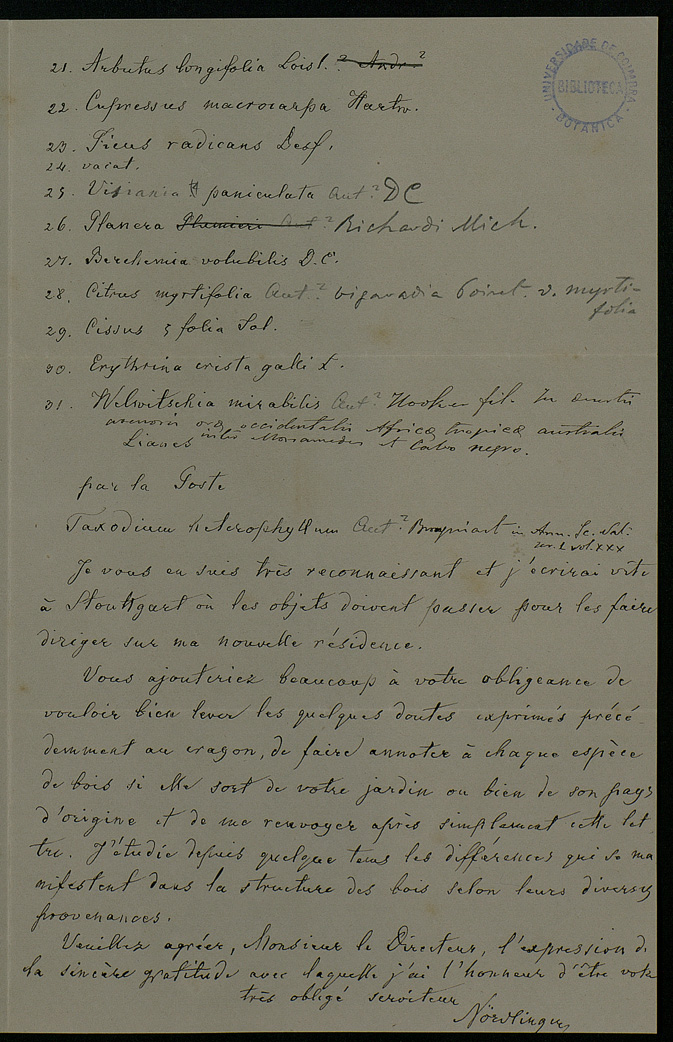 UNIVERSIDADE DE COIMBRA
BIBLIOTECA
BOTANICA
21. Arbutus longifolia Lois l. ? Andr ?
22. Cupressus macrocarpa Hartw.
23. Ficus radicans Desf.
24. vacat.
25. Visiania paniculata Aut.? DC
26. Planera Aut ? Richardi Mich.
27. Berchemia volubilis D.C.
28. Citrus myrtifolia Aut.? bigaradia Poiret. v. myrti-
folia
29. Cissus 5 folia Sol.
30. Erythrina crista galli L.
31. Welwitschia mirabilis Aut? Hooker fil. In
oræ occidentalis Africæ tropicæ australis
Lianes inter Mossamedes et Cabo negro.
par la Poste
Taxodium heterophyllum Aut.? Brongniart in Ann. Sc. Nat.
ser. 1 vol. XXX
Je vous en suis très reconnaissant et j'écrirai vite
à Stouttgart où les objets doivent passer pour les faire
diriger sur ma nouvelle résidence.
Vous ajouteriez beaucoup à votre obligeance de
vouloir bien lever les quelques doutes exprimés précé-
demment au crayon, de faire annoter à chaque espèce
de bois si elle sort de votre jardin ou bien de son pays
d'origine et de me renvoyer après simplement cette let
tre. J'étudie depuis quelque tems les différences qui se ma
nifestent dans la structure des bois selon leurs diverses
provenances.
Veuillez agréer, Monsieur le Directeur, l'expression de
la sincère gratitude avec laquelle j'ai l'honneur d'être votre
très obligé serviteur
Nördlinger